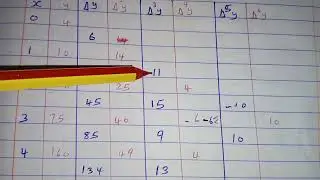 x y Δy Δ²y Δ³y Δ⁴y Δ⁵y Δ⁶y
0 4
6
1 10 14
11
25 4
45 15 -10
3 75 40 -6 10
85 9 10
4 160 49 4
134 13